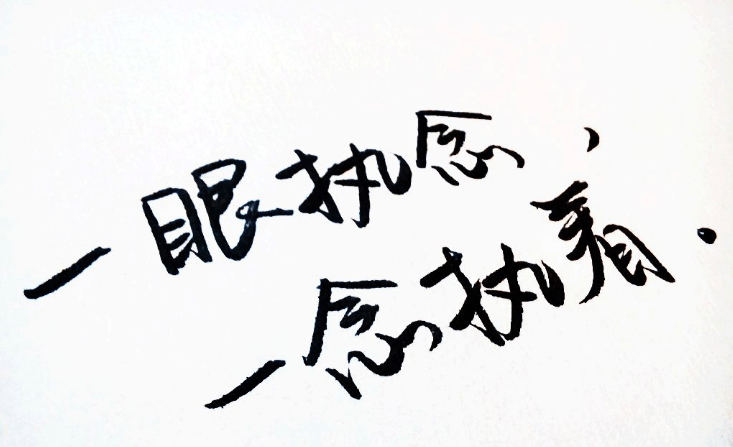 一眼执念、
一念执着.